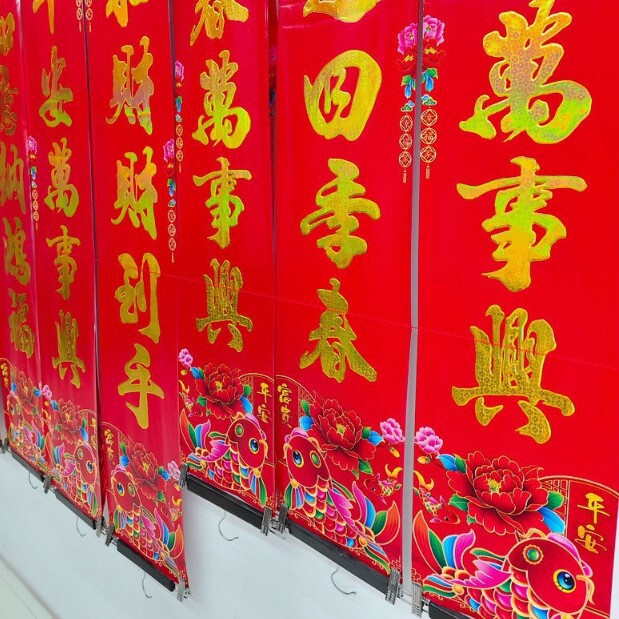 納鴻福
安萬事興
財財到手
春萬事興
四季春
萬事興
富貴
平安
富貴
平安